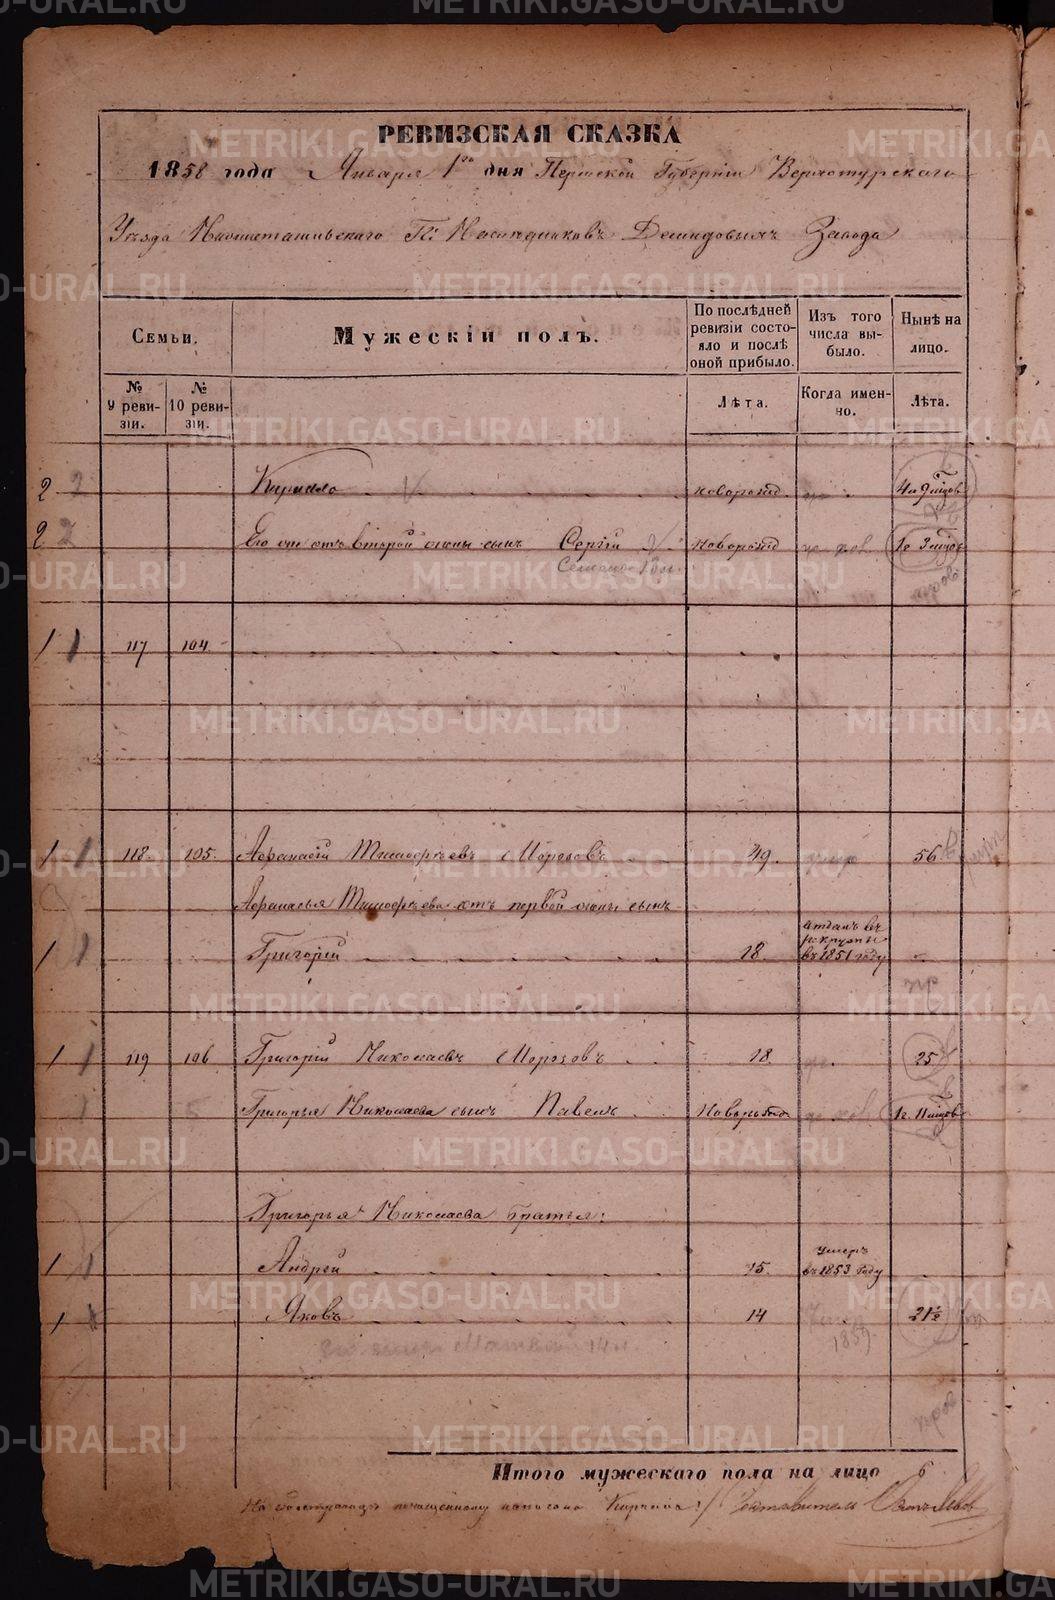 METRIKI.GASO-URAL.RU METRIKI.GA
РЕВИЗСКАЯ СКАЗКА
1858 года Января 1го дня Пермской Губерніи Верхотурскаго
Уѣзда Нижнетагильскаго Гг: Наслѣдниковъ Демидовыхъ Завода
Семьи.
Мужескій полъ.
По послѣдней ревизіи состояло и послѣ оной прибыло.
Изъ того числа выбыло.
Нынѣ на лицо.
№ 9 ревизіи.
№ 10 ревизіи.
Лѣта.
Когда именно.
Лѣта.
2 2 Кирилло новорожд 4 и 9 мцовъ
2 2 Его от второй жены сынъ Сергій новорожд 1г 3 мцовъ
1 1 117 104
1 1 118 105 Афанасій Тимофеевъ Морозовъ 49 умер 56
Афанасья Тимофеева отъ первой жены сынъ
1 1 Григорій 18 отданъ въ рекруты въ 1851 году
1 1 119 106 Григорій Николаевъ Морозовъ 18 25
1 Григорья Николаева сынъ Павелъ Новорожд 1г. 11 мцовъ
Григорья Николаева братья:
1 1 Андрей 15 умеръ въ 1853 году
1 Яковъ 14 1859 21½
Матвей 14 л.
Итого мужескаго пола на лицо 6